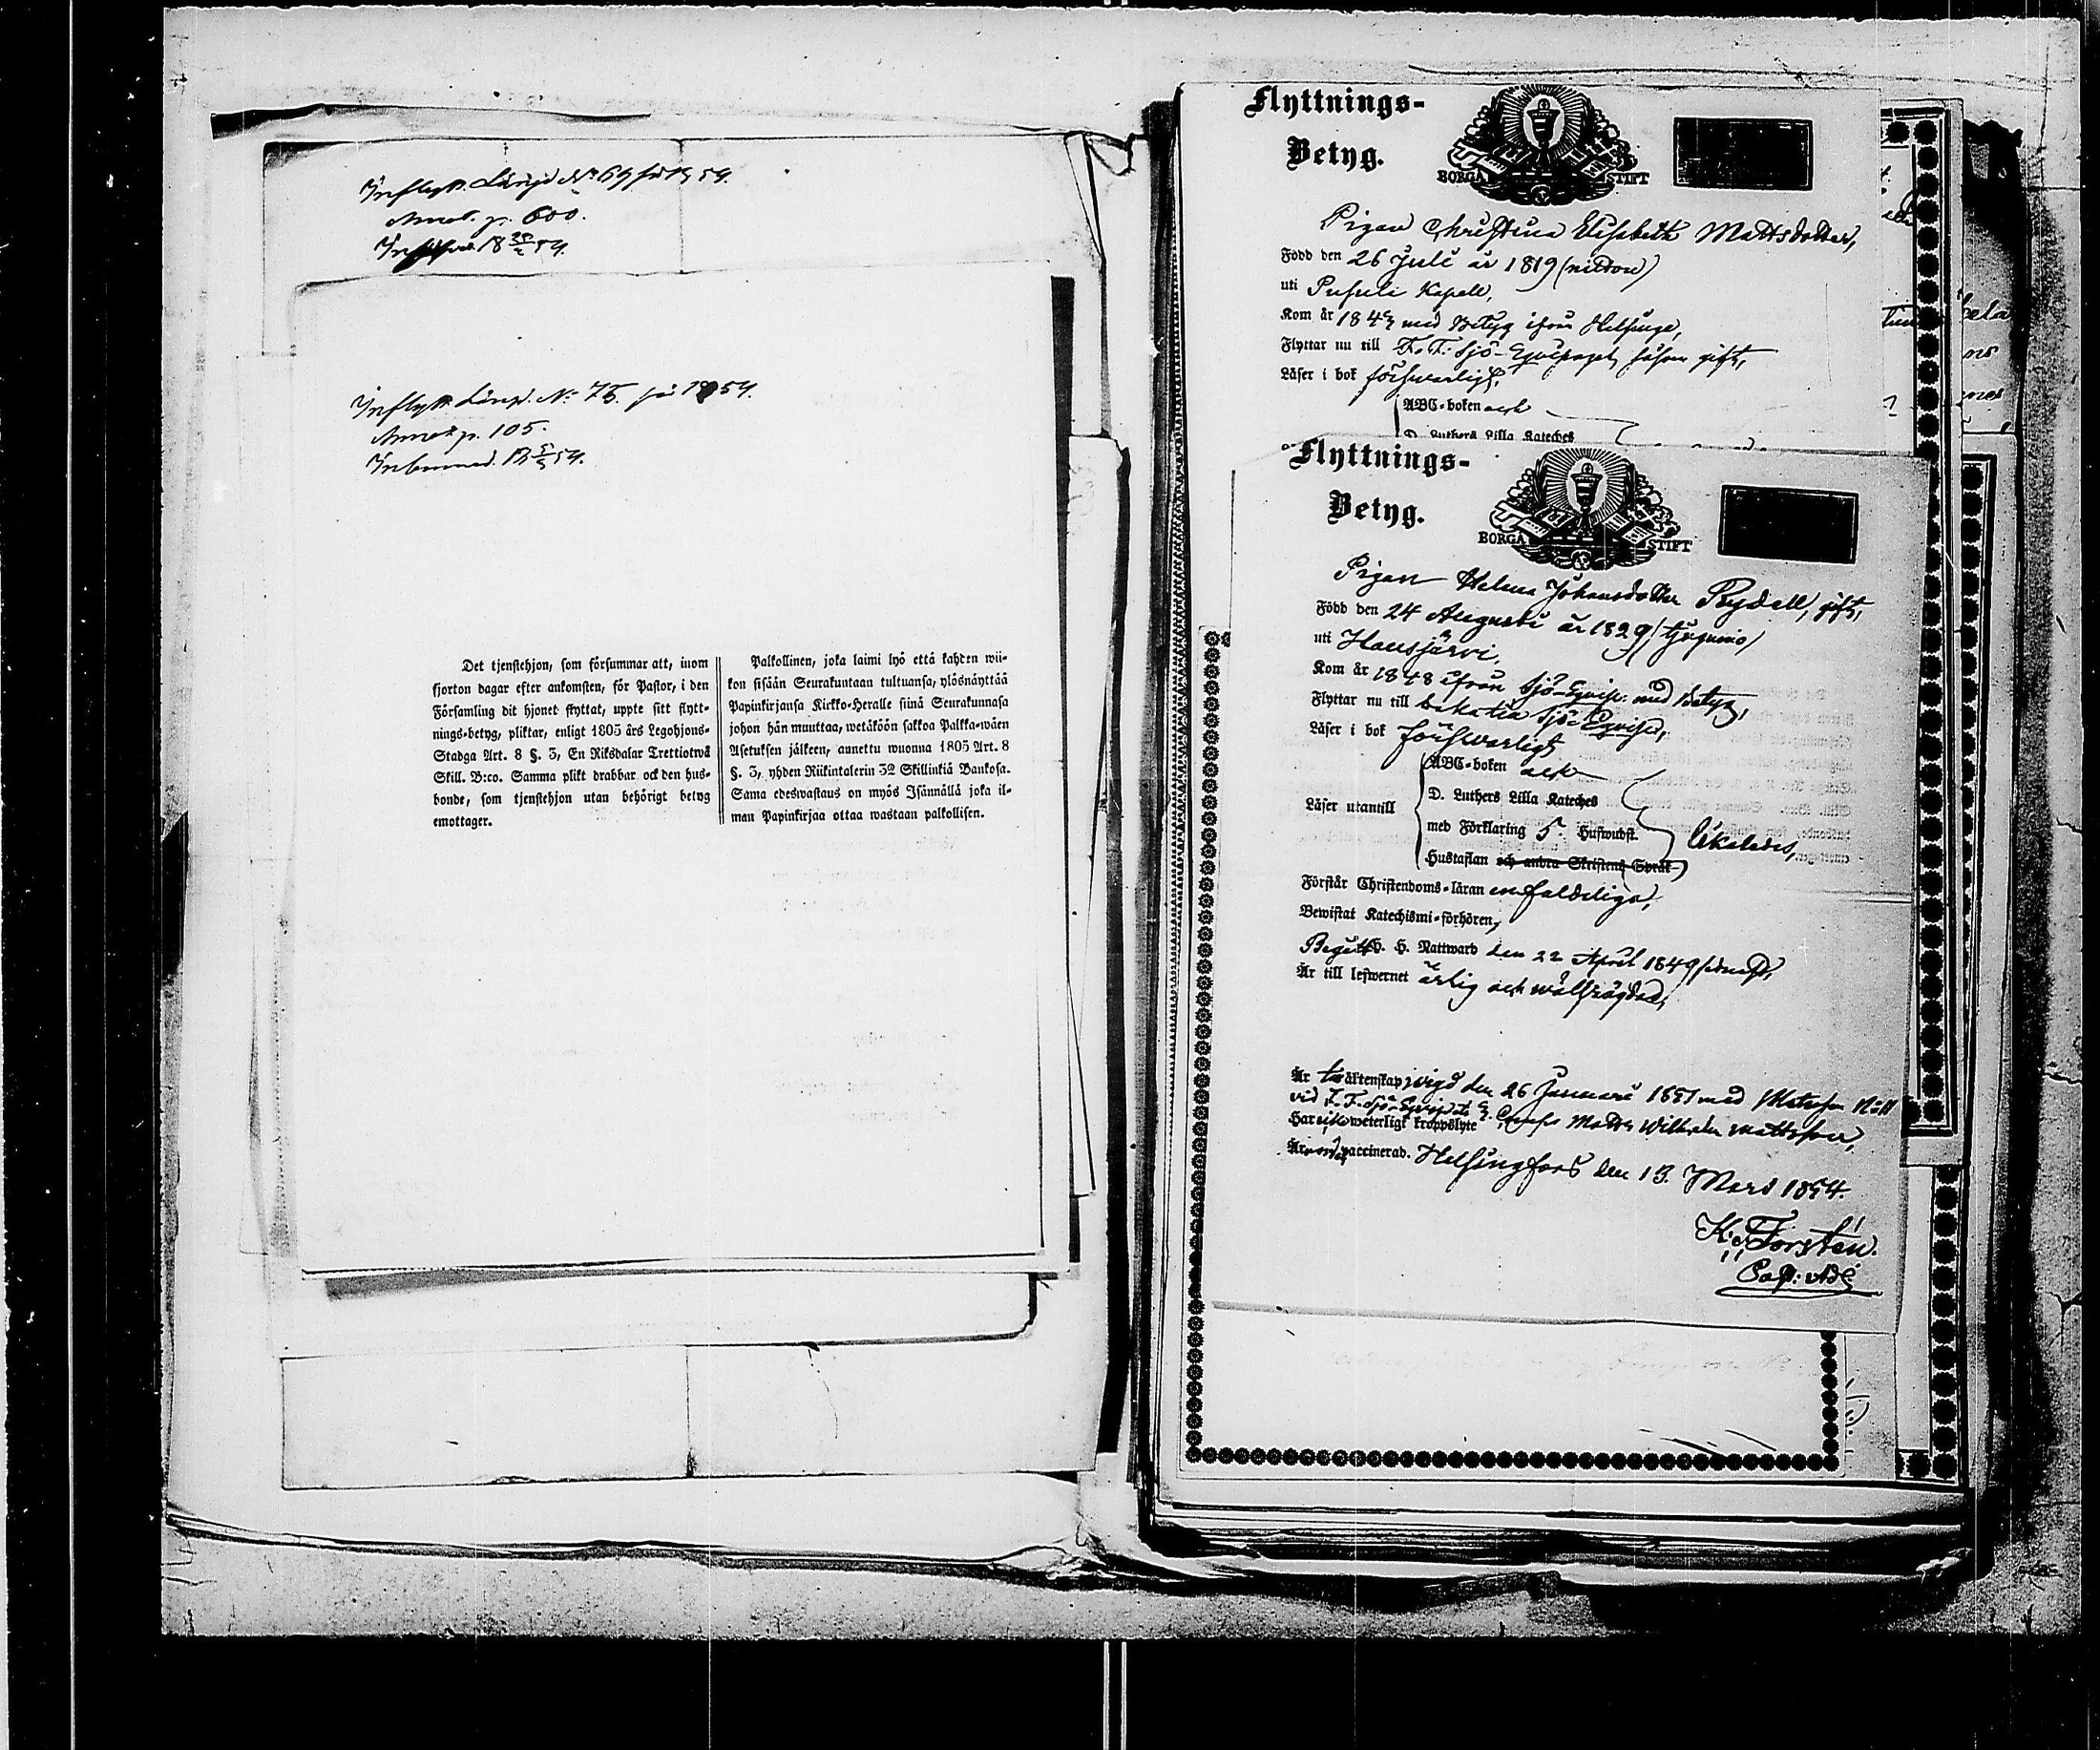 Inflytt. Längd N:o 69 för 1854.
Annot. p. 600.
18 54.
Inflytt. Längd. N:o 75. för 1854.
Annot. p. 105.
54.
Det tjenstehjon, som försummar att, inom
fjorton dagar efter ankomsten, för Pastor, i den
Församling dit hjonet flyttat, uppte sitt flytt-
nings-betyg, pliktar, enligt 1805 års Legohjons-
Stadga Art. 8 §. 3, En Riksdalar Trettiotwå
Skill. B:co. Samma plikt drabbar ock den hus-
bonde, som tjenstehjon utan behörigt betyg
emottager.
Palkollinen, joka laimi lyö että kahden wii-
kon sisään Seurakuntaan tultuansa, ylösnäyttää
Papinkirjansa Kirkko-Heralle siinä Seurakunnasa
johon hän muuttaa, wetäköön sakkoa Palkka-wäen
Asetuksen jälkeen, annettu wuonna 1805 Art. 8
§. 3, yhden Riikintalerin 32 Skillinkiä Bankosa.
Sama edeswastaus on myös Isännällä joka il-
man Papinkirjaa ottaa wastaan palkollisen.
Flyttnings-
Betyg.
BORGÅ STIFT
Pigan Christina Elisabeth Mattsdotter,
Född den 26 Juli år 1819 (nitton)
uti Pusula Kapell,
Kom år 184 med Betyg ifrån Helsinge,
Flyttar nu till F. F: Sjö-Equipaget, såsom gift,
Läser i bok förswarligt,
ABC-boken och
D. Luthers Lilla Kateches
Flyttnings-
Betyg.
BORGÅ STIFT
Pigan Helena Johansdotter Rydell, gift,
Född den 24 Augusti år 1829 (tjugunio)
uti Hausjärvi,
Kom år 1848 ifrån Sjö-Equip. med Betyg,
Flyttar nu till bekatta Sjö-Equip.,
Läser i bok förswarligt
ABC-boken och
D. Luthers Lilla Kateches
Läser utantill
med Förklaring 5. Hufwudst.
likaledes,
Hustaflan och andra Skriftens Språk
Förstår Christendoms-läran enfaldeliga,
Bewistat Katechismi-förhören,
Begått H. H. Nattward den 22 April 1849 sednast,
Är till lefwernet ärlig och wälfrägdad,
Är till äktenskap wigd den 26 Januari 1851 med Matrosen N:o
vid F. F. Sjö-Equip. Matts Wilhelm Mattsson,
Har icke weterligt kroppslyte
Är vaccinerad. Helsingfors den 13. Mars 1854.
K: J: Forstén.
Past: Adj.